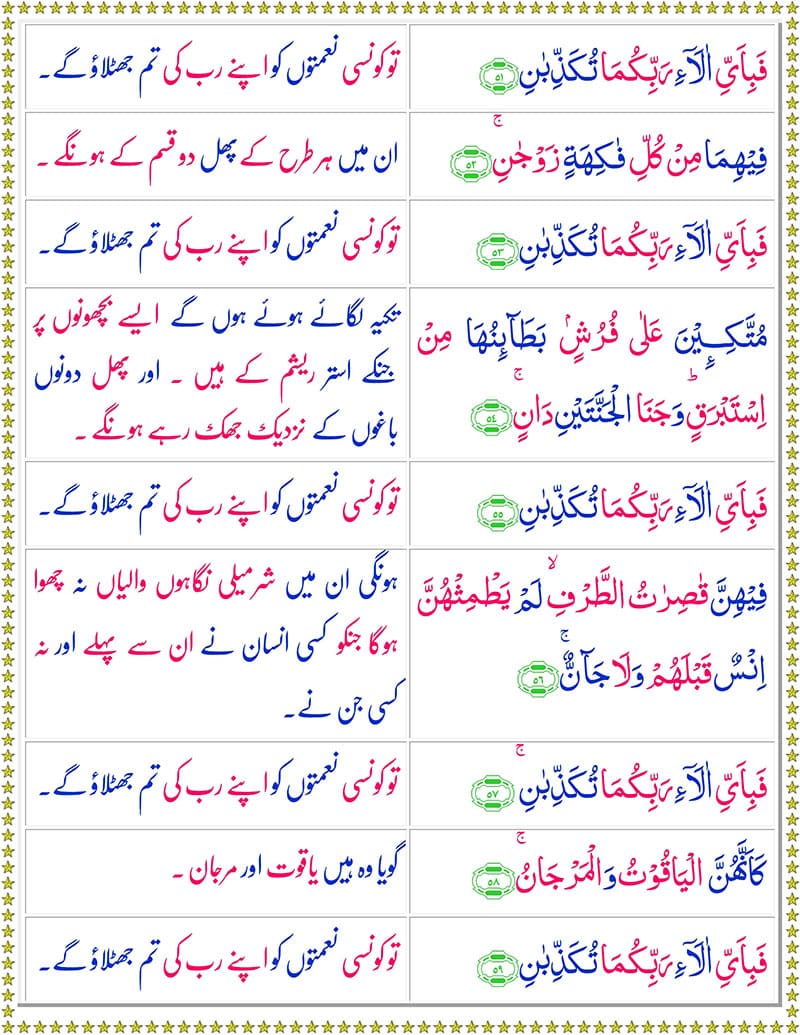 فَبِاَىِّ اٰلَآءِ رَبِّكُمَا تُكَذِّبٰنِ ﴿٥١﴾
تو کونسی نعمتوں کو اپنے رب کی تم جھٹلاؤ گے۔
فِيْهِمَا مِنْ كُلِّ فٰكِهَةٍ زَوْجٰنِ ۚ ﴿٥٢﴾
ان میں ہر طرح کے پھل دو قسم کے ہونگے ۔
فَبِاَىِّ اٰلَآءِ رَبِّكُمَا تُكَذِّبٰنِ ﴿٥٣﴾
تو کونسی نعمتوں کو اپنے رب کی تم جھٹلاؤ گے۔
مُتَّكِـِٕيْنَ عَلٰى فُرُشٍۭ بَطَآىِٕنُهَا مِنْ
اِسْتَبْرَقٍ ؕ وَجَنَا الْجَنَّتَيْنِ دَانٍ ۚ ﴿٥٤﴾
تکیہ لگائے ہوئے ہوں گے ایسے بچھونوں پر
جنکے استر ریشم کے ہیں ۔ اور پھل دونوں
باغوں کے نزدیک جھک رہے ہونگے ۔
فَبِاَىِّ اٰلَآءِ رَبِّكُمَا تُكَذِّبٰنِ ﴿٥٥﴾
تو کونسی نعمتوں کو اپنے رب کی تم جھٹلاؤ گے۔
فِيْهِنَّ قٰصِرٰتُ الطَّرْفِ ۙ لَمْ يَطْمِثْهُنَّ
اِنْسٌ قَبْلَهُمْ وَلَا جَآنٌّ ۚ ﴿٥٦﴾
ہونگی ان میں شرمیلی نگاہوں والیاں نہ چھوا
ہوگا جنکو کسی انسان نے ان سے پہلے اور نہ
کسی جن نے۔
فَبِاَىِّ اٰلَآءِ رَبِّكُمَا تُكَذِّبٰنِ ۚ ﴿٥٧﴾
تو کونسی نعمتوں کو اپنے رب کی تم جھٹلاؤ گے۔
كَاَنَّهُنَّ الْيَاقُوْتُ وَالْمَرْجَانُ ۚ ﴿٥٨﴾
گویا وہ ہیں یاقوت اور مرجان ۔
فَبِاَىِّ اٰلَآءِ رَبِّكُمَا تُكَذِّبٰنِ ﴿٥٩﴾
تو کونسی نعمتوں کو اپنے رب کی تم جھٹلاؤ گے۔